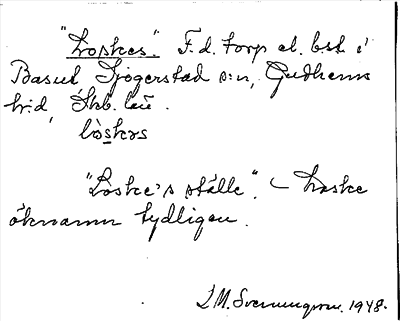 "Loskes". F.d. torp el. bst. i
Basut Sjögerstad s:n, Gudhems
h:d, Skb. län.
lòskəs
"Loske's ställe". – Loske
öknamn tydligen.
L M. Svenungson. 1948.